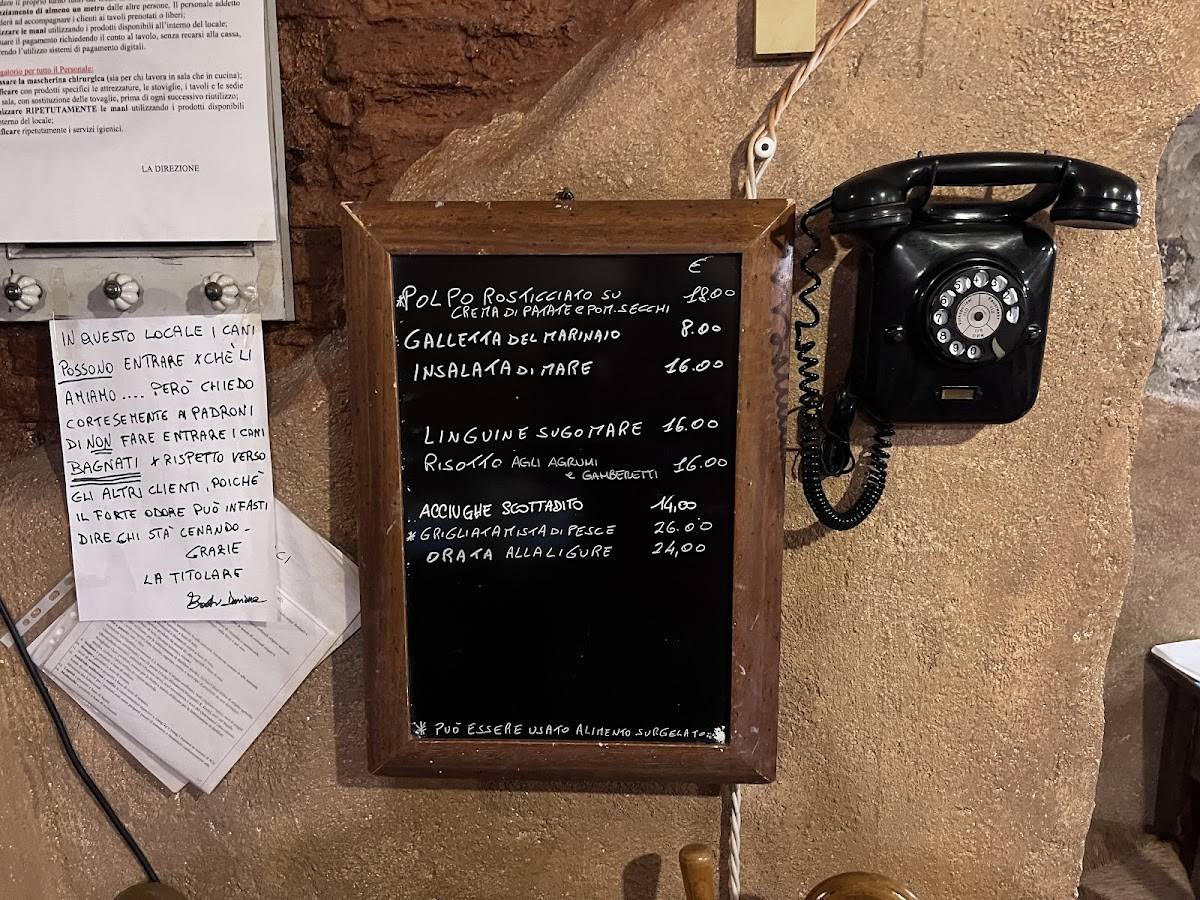 nziamento di almeno un metro dalle altre persone. Il personale addetto
derà ad accompagnare i clienti ai tavoli prenotati o liberi;
izzare le mani utilizzando i prodotti disponibili all'interno del locale;
uare il pagamento richiedendo il conto al tavolo, senza recarsi alla cassa,
endo l'utilizzo sistemi di pagamento digitali.
gatorio per tutto il Personale:
ssare la mascherina chirurgica (sia per chi lavora in sala che in cucina);
ificare con prodotti specifici le attrezzature, le stoviglie, i tavoli e le sedie
sala, con sostituzione delle tovaglie, prima di ogni successivo riutilizzo;
nizzare RIPETUTAMENTE le mani utilizzando i prodotti disponibili
nterno del locale;
ificare ripetutamente i servizi igienici.
LA DIREZIONE
IN QUESTO LOCALE I CANI
POSSONO ENTRARE XCHÈ LI
AMIAMO.... PERÒ CHIEDO
CORTESEMENTE AI PADRONI
DI NON FARE ENTRARE I CANI
BAGNATI X RISPETTO VERSO
GLI ALTRI CLIENTI, POICHÈ
IL FORTE ODORE PUÒ INFASTI
DIRE CHI STÀ CENANDO-
GRAZIE
LA TITOLARE
€
*POLPO ROSTICCIATO SU 18.00
CREMA DI PATATE e POM.SECCHI
GALLETTA DEL MARINAIO 8.00
INSALATA DI MARE 16.00
LINGUINE SUGO MARE 16.00
RISOTTO AGLI AGRUMI 16.00
e GAMBERETTI
ACCIUGHE SCOTTADITO 14,00
*GRIGLIATA MISTA DI PESCE 26.00
ORATA ALLA LIGURE 24,00
* PUÒ ESSERE USATO ALIMENTO SURGELATO